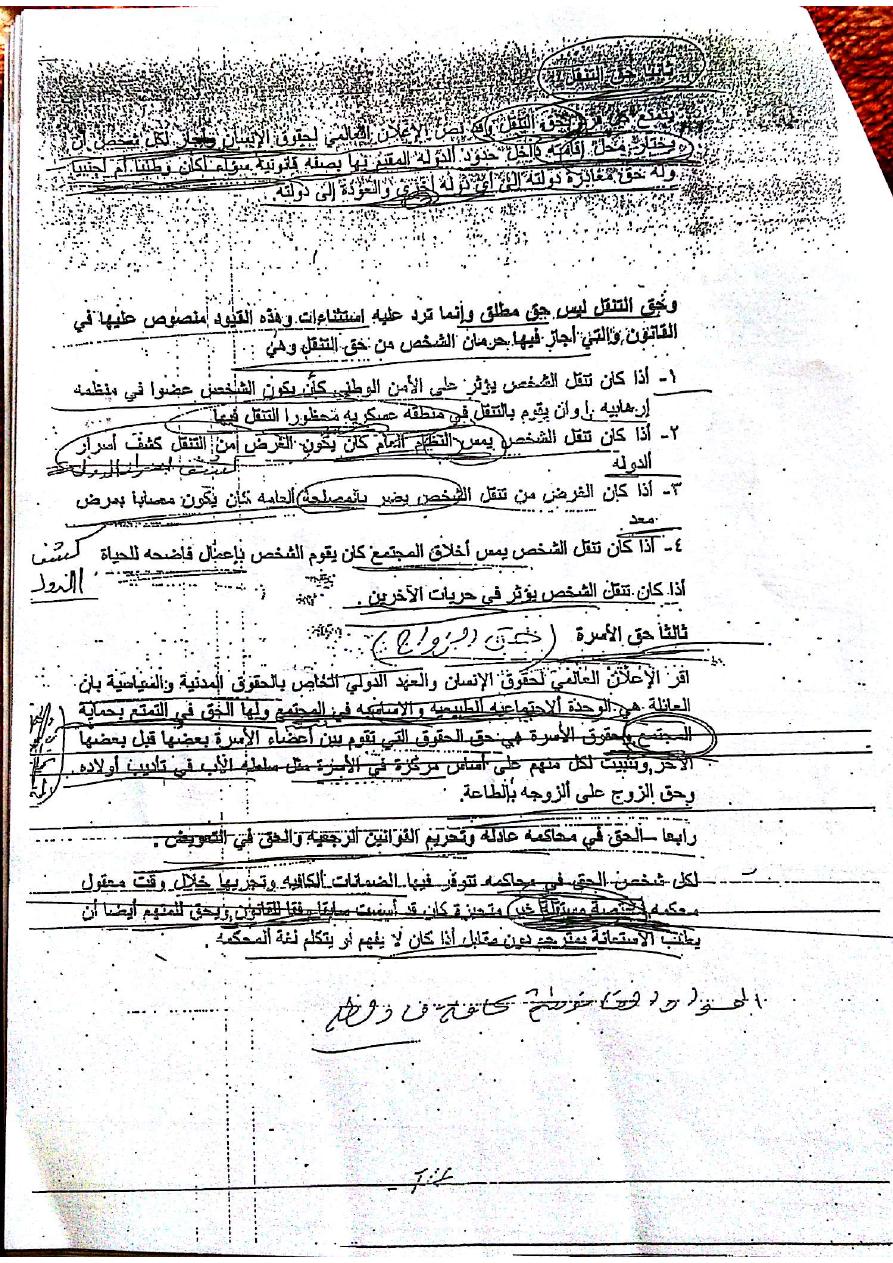 ثانيا حق التنقل
يتمتع كل فرد بحق التنقل وقد نص الإعلان العالمي لحقوق الإنسان لكل شخص أن
يختار محل إقامته داخل حدود الدولة المقيم بها بصفه قانونية سواء اكان وطنيا أم اجنبيا
وله حق مغادرة دولته إلى أي دولة أخرى والعودة إلى دولته.
وحق التنقل ليس حق مطلق وإنما ترد عليه استثناءات وهذه القيود منصوص عليها في
القانون والتي أجاز فيها حرمان الشخص من حق التنقل وهي
١- أذا كان تنقل الشخص يؤثر على الأمن الوطني كأن يكون الشخص عضوا في منظمه
إرهابيه او ان يقوم بالتنقل في منطقه عسكريه محظورا التنقل فيها
٢- أذا كان تنقل الشخص يمس النظام العام كان يكون الغرض من التنقل كشف أسرار
الدوله
٣- أذا كان الغرض من تنقل الشخص يضر بالمصلحة العامه كان يكون مصابا بمرض
معد
٤- اذا كان تنقل الشخص يمس أخلاق المجتمع كان يقوم الشخص بإعمال فاضحه للحياة
كشف
أذا كان تنقل الشخص يؤثر في حريات الآخرين .
ثالثا حق الأسرة (حق الزواج)
اقر الإعلان العالمي لحقوق الإنسان والعهد الدولي الخاص بالحقوق المدنية والسياسية بان
العائلة هي الوحدة الاجتماعيه الطبيعيه والاساسيه في المجتمع ولها الحق في التمتع بحماية
المجتمع وحقوق الأسرة هي حق الحقوق التي تقوم بين أعضاء الأسرة بعضها قبل بعضها
الآخر وتثبت لكل منهم على أساس مركزة في الأسرة مثل سلطه الأب في تأديب أولاده
وحق الزوج على ألزوجه بالطاعة.
رابعا –الحق في محاكمه عادله وتحريم القوانين الرجعيه والحق في التعويض .
لكل شخص الحق في محاكمه تتوفر فيها الضمانات الكافيه وتجريها خلال وقت معقول
محكمه مختصة مستقلة غير متحيزة كان قد أسست سابقا وفقا للقانون ويحق للمتهم أيضا أن
يطلب الاستعانة بمترجم دون مقابل أذا كان لا يفهم أو يتكلم لغة المحكمه .